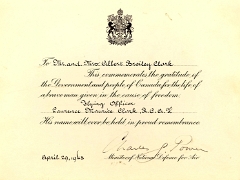 To Mr. and Mrs. Albert Bailey Clark
This commemorates the gratitude of
the Government and people of Canada for the life of
a brave man given in the cause of freedom.
Flying Officer
Laurence Maurice Clark, R.C.A.F.
His name will ever be held in proud remembrance.
Charles G. Power
April 29, 1943 Minister of National Defence for Air